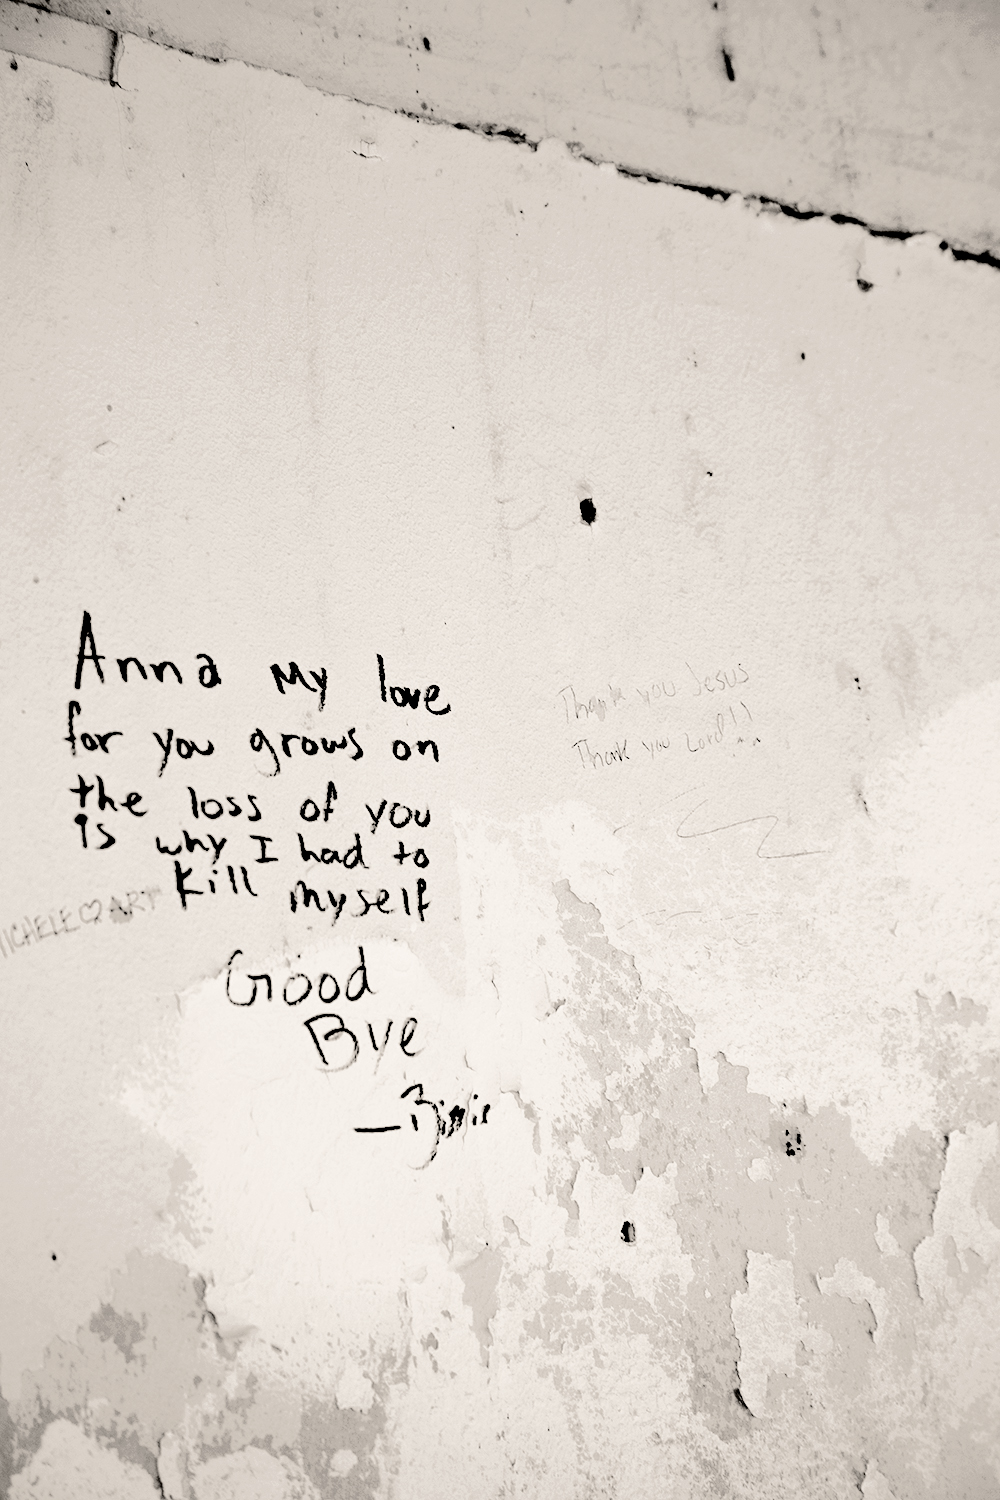 Anna My love
for you grows on
the loss of you
is why I had to
kill myself
Good
Bye
Thank you Jesus
Thank you Lord!!
MICHELE♡ART